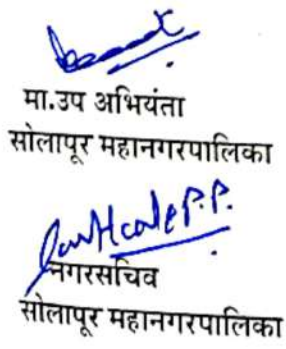 मा.उप अभियंता
सोलापूर महानगरपालिका
नगरसचिव
सोलापूर महानगरपालिका